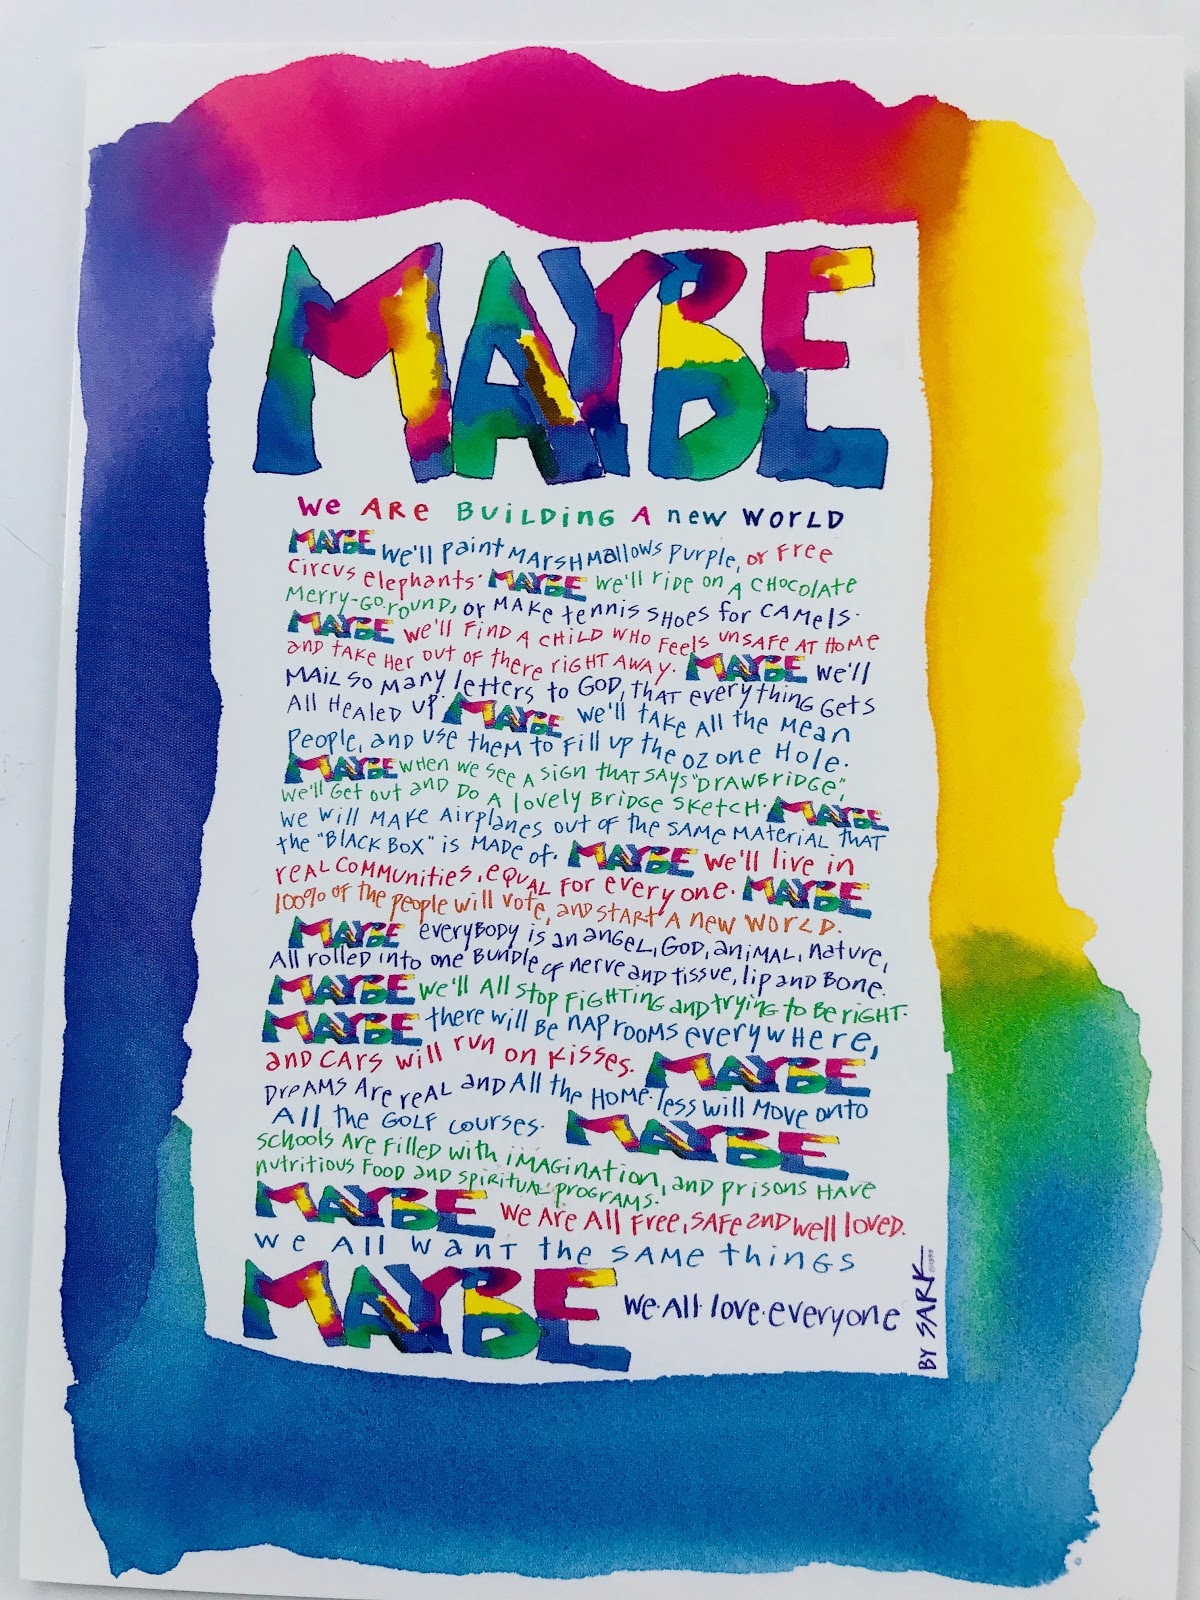 MAYBE
We ARE BUiLDiNG A new WORLD
MAYBE we'll paint MARSHMallows purple, or free
circus elephants. MAYBE we'll ride on A CHOCOLATE
Merry-Go-round, or MAKe tennis SHOes for CAMels.
MAYBE we'll FIND A CHILD WHO Feels UNSAFE AT HOMe
and TAKe Her OUT OF THere riGHT AWAY. MAYBE we'll
MAIL SO MANy letters to GOD, THAT everyTHING GeTs
All HeALeD UP. MAYBE we'll TAKE All the Mean
People, and Use THeM to Fill up the OZONe HoLe.
MAYBE WHeN we see A SIGN that SAYS "DRAWBRiDGE",
we'll GeT OUT and DO A lovely BriDGe SKeTCH. MAYBE
we will MAKe AirpLaNes OUT OF the SAMe MATeriAL THAT
the "BLACK BOX" is MADe of. MAYBE we'll live in
reAL COMMUNities, eQUAL For every one. MAYBE
100% OF the people will VOTe, and START A new WORLD.
MAYBE everyBODY is an anGeL, GOD, aniMAL, nature,
All rolled into one BUNDLe OF nerve and tissue, lip and BONe.
MAYBE we'll All stop FiGHTiNG and trying to Be riGHT.
MAYBE there will Be NAP rooms everywHere,
and CARS will run on Kisses. MAYBE
Dreams Are reAL and All the HOMe-less will Move onto
All the GOLF courses. MAYBE
Schools Are Filled with iMAGiNATion,
nutritious FOOD and spiritual programs. and prisons HAVe
MAYBE we Are All Free, SAFe and well loved.
we All want the SAMe things
MAYBE we·All·love·everyone
BY SARK